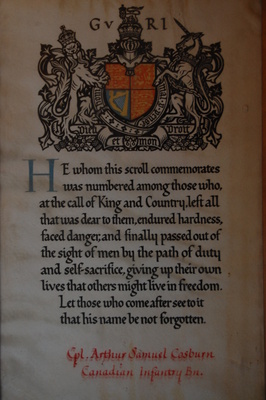 GV RI
Dieu et mon Droit
HE whom this scroll commemorates
was numbered among those who,
at the call of King and Country, left all
that was dear to them, endured hardness,
faced danger, and finally passed out of
the sight of men by the path of duty
and self-sacrifice, giving up their own
lives that others might live in freedom.
Let those who come after see to it
that his name be not forgotten.
Cpl. Arthur Samuel Cosburn
Canadian Infantry Bn.